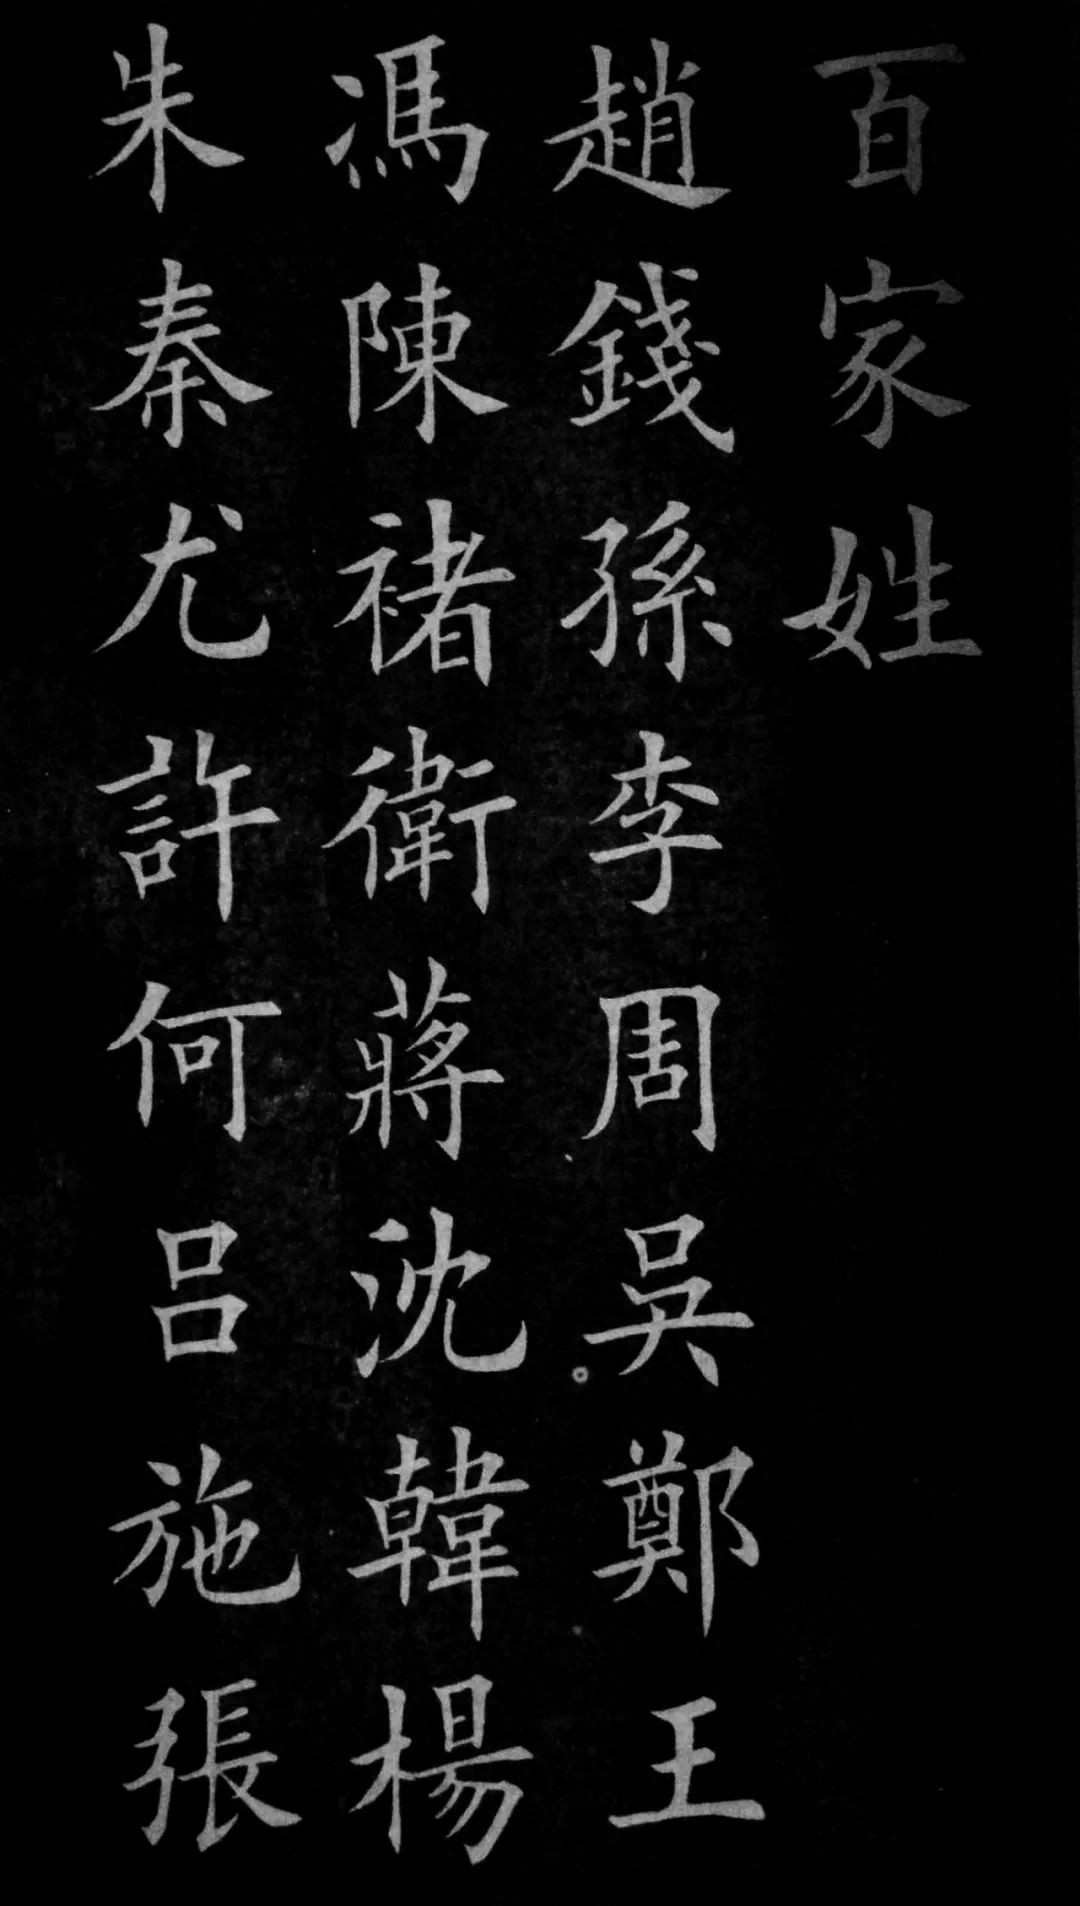 百家姓
趙錢孫李周吳鄭王
馮陳褚衛蔣沈韓楊
朱秦尤許何呂施張